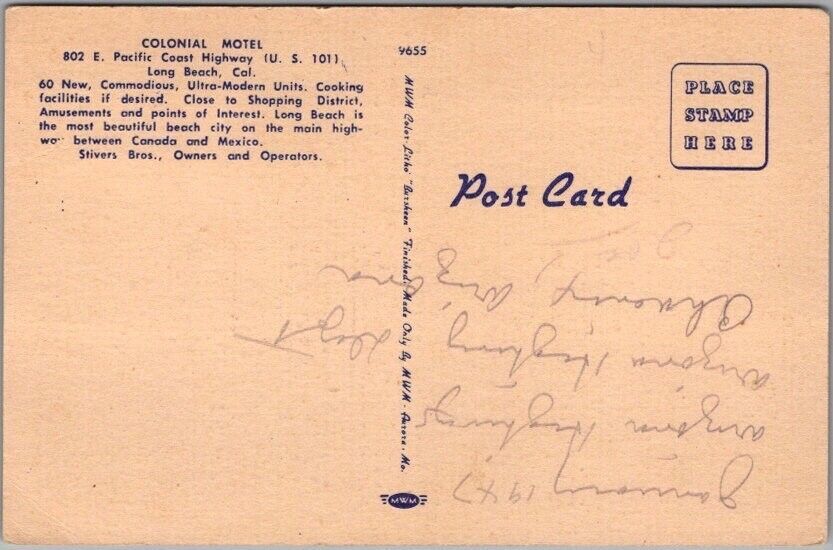 COLONIAL MOTEL
802 E. Pacific Coast Highway (U. S. 101)
Long Beach, Cal.
60 New, Commodious, Ultra-Modern Units. Cooking
facilities if desired. Close to Shopping District,
Amusements and points of Interest. Long Beach is
the most beautiful beach city on the main high-
way between Canada and Mexico.
Stivers Bros., Owners and Operators.
9655
MWM Color-Litho "Bursheen" Finished; Made Only By MWM - Aurora, Mo.
MWM
PLACE
STAMP
HERE
Post Card
January 1947
Arizona Highways
Arizona Highway Dept
Phoenix, Arizona